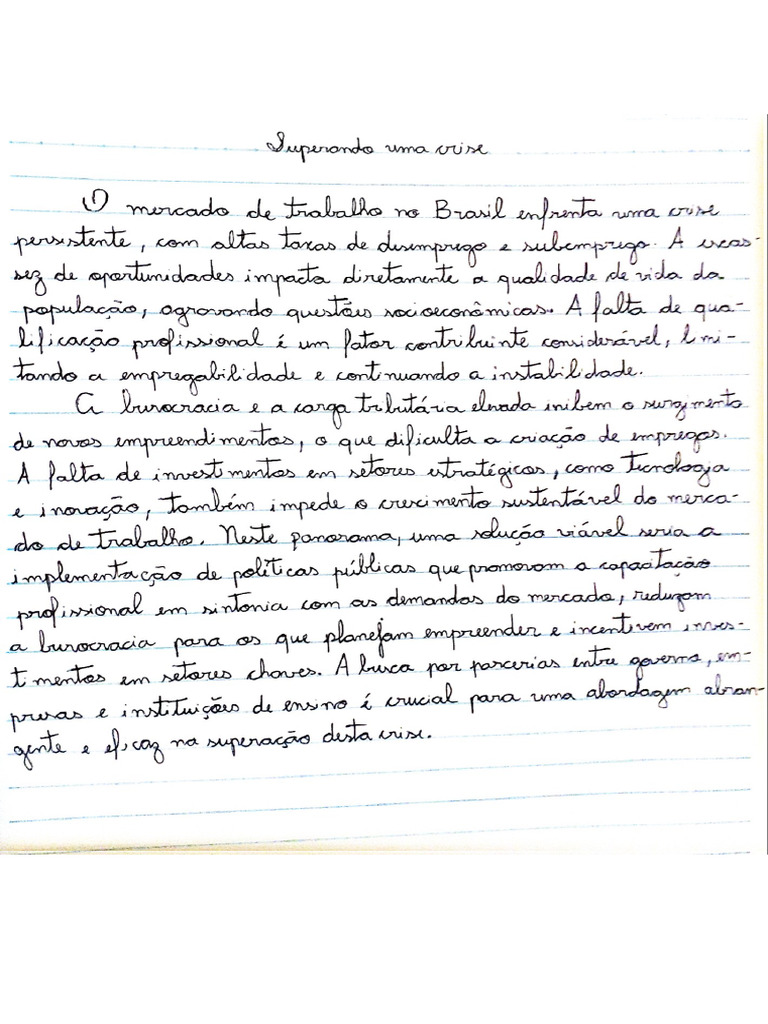 Superando uma crise
O mercado de trabalho no Brasil enfrenta uma crise
persistente, com altas taxas de desemprego e subemprego. A escas-
sez de oportunidades impacta diretamente a qualidade de vida da
população, agravando questões socioeconômicas. A falta de qua-
lificação profissional é um fator contribuinte considerável, limi-
tando a empregabilidade e continuando a instabilidade.
A burocracia e a carga tributária elevada inibem o surgimento
de novos empreendimentos, o que dificulta a criação de empregos.
A falta de investimentos em setores estratégicos, como tecnologia
e inovação, também impede o crescimento sustentável do merca-
do de trabalho. Neste panorama, uma solução viável seria a
implementação de políticas públicas que promovam a capacitação
profissional em sintonia com as demandas do mercado, reduzam
a burocracia para os que planejam empreender e incentivem inves-
timentos em setores chaves. A busca por parcerias entre governo, em-
presas e instituições de ensino é crucial para uma abordagem abran-
gente e eficaz na superação desta crise.